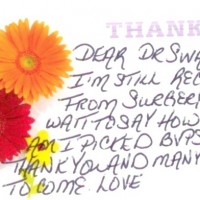 THANK
DEAR DR SWA
I'M STILL REC
FROM SURGERY
WAIT TO SAY HOW
AM I PICKED BVPS
THANK YOU AND MANY
TO COME. LOVE